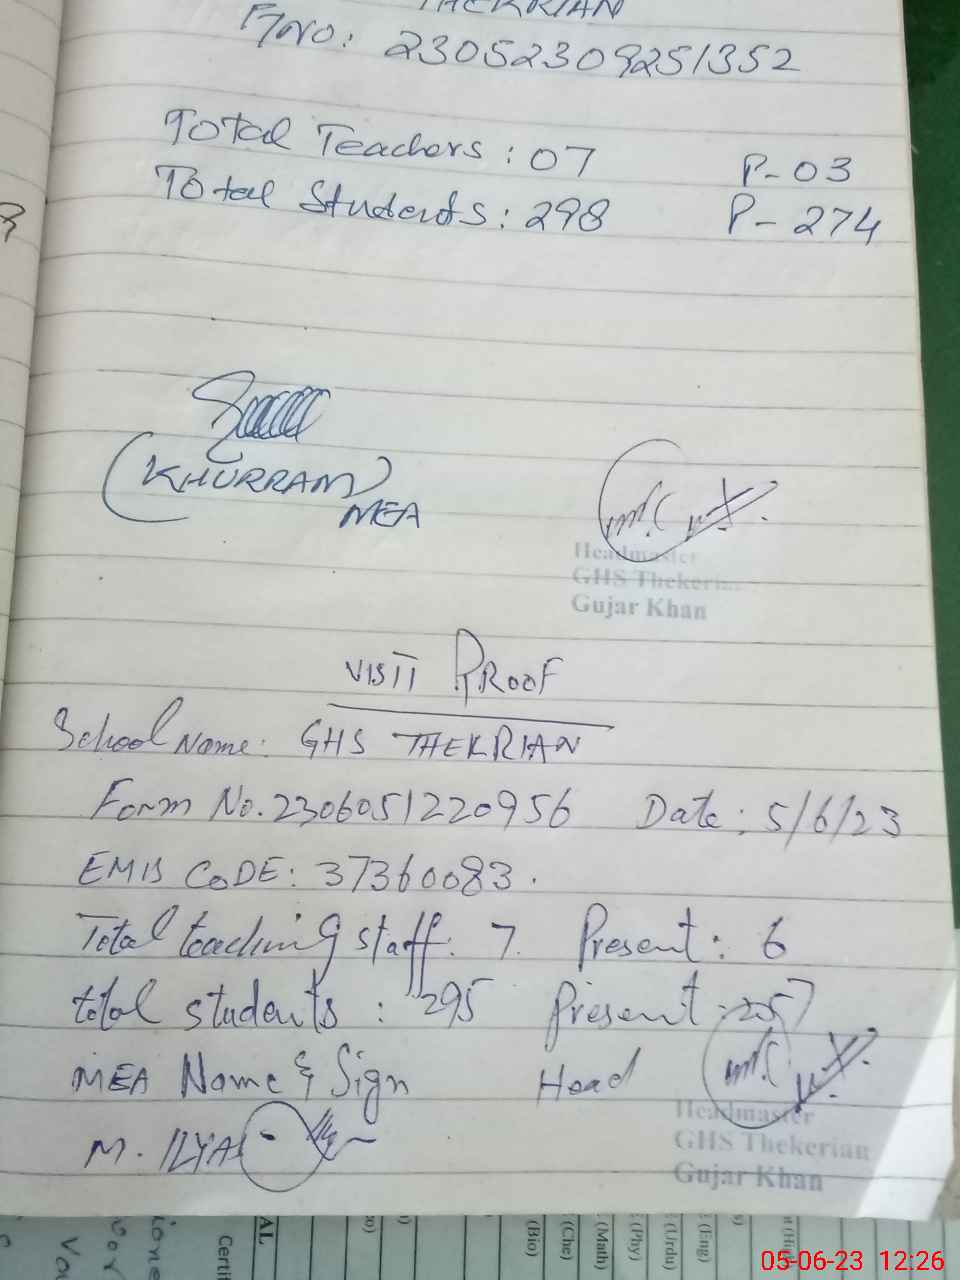 THEKRIAN
F/No: 23052309251352
Total Teachers: 07 P-03
Total Students: 298 P-274
(KHURRAM)
MEA
Headmaster
GHS Thekerian
Gujar Khan
VISIT PROOF
School Name: GHS THEKRIAN
Form No. 2306051220956 Date: 5/6/23
EMIS CODE: 37360083.
Total teaching staff: 7. Present: 6
total students: 295 Present: 257
MEA Name & Sign Head
M. ILYAS
Headmaster
GHS Thekerian
Gujar Khan
AL
Certi
(Bio)
(Che)
(Math)
(Phy)
(Urdu)
(Eng)
05-06-23 12:26